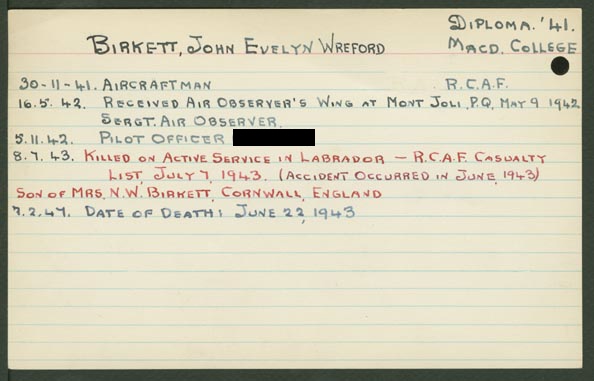 DIPLOMA. '41.
BIRKETT, JOHN EVELYN WREFORD MACD. COLLEGE
30-11-41. AIRCRAFTMAN R.C.A.F.
16.5.42. RECEIVED AIR OBSERVER'S WING AT MONT JOLI, P.Q, MAY 9 1942
SERGT. AIR OBSERVER.
5.11.42. PILOT OFFICER
8.7.43. KILLED ON ACTIVE SERVICE IN LABRADOR — R.C.A.F. CASUALTY
LIST, JULY 7, 1943. (ACCIDENT OCCURRED IN JUNE, 1943)
SON OF MRS. N.W. BIRKETT, CORNWALL, ENGLAND
7.2.47. DATE OF DEATH: JUNE 22, 1943